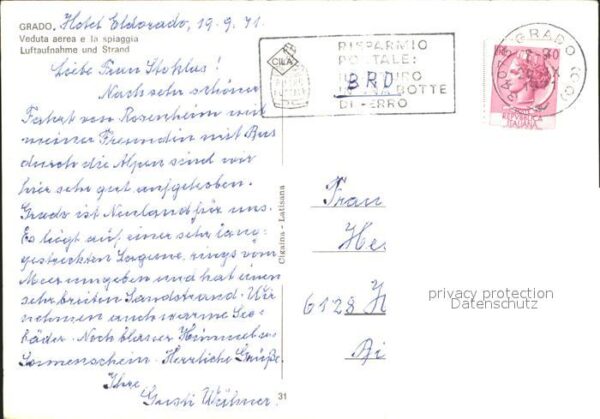 GRADO. Hotel Eldorado, 19.9.71.
Veduta aerea e la spiaggia
Luftaufnahme und Strand
Liebe Frau
Nach sehr schöner
Fahrt von Rosenheim mit
meiner Freundin mit Bus
durch die Alpen sind wir
hier sehr gut aufgehoben.
Grado ist Neuland für uns.
Es liegt auf einer sehr lang-
gestreckten Lagune, rings vom
Meer umgeben und hat einen
sehr breiten Sandstrand. Wir
nehmen auch warme See-
bäder. Noch blauer Himmel u.
Sonnenschein. Herrliche Grüße.
Ihre
Gusti
Cigaina - Latisana
31
CILA
RISPARMIO
POSTALE:
BRD
BOTTE
DI FERRO
GRADO (GO)
REPVBBLICA
ITALIANA
Frau
He
6128 H
privacy protection
Datenschutz